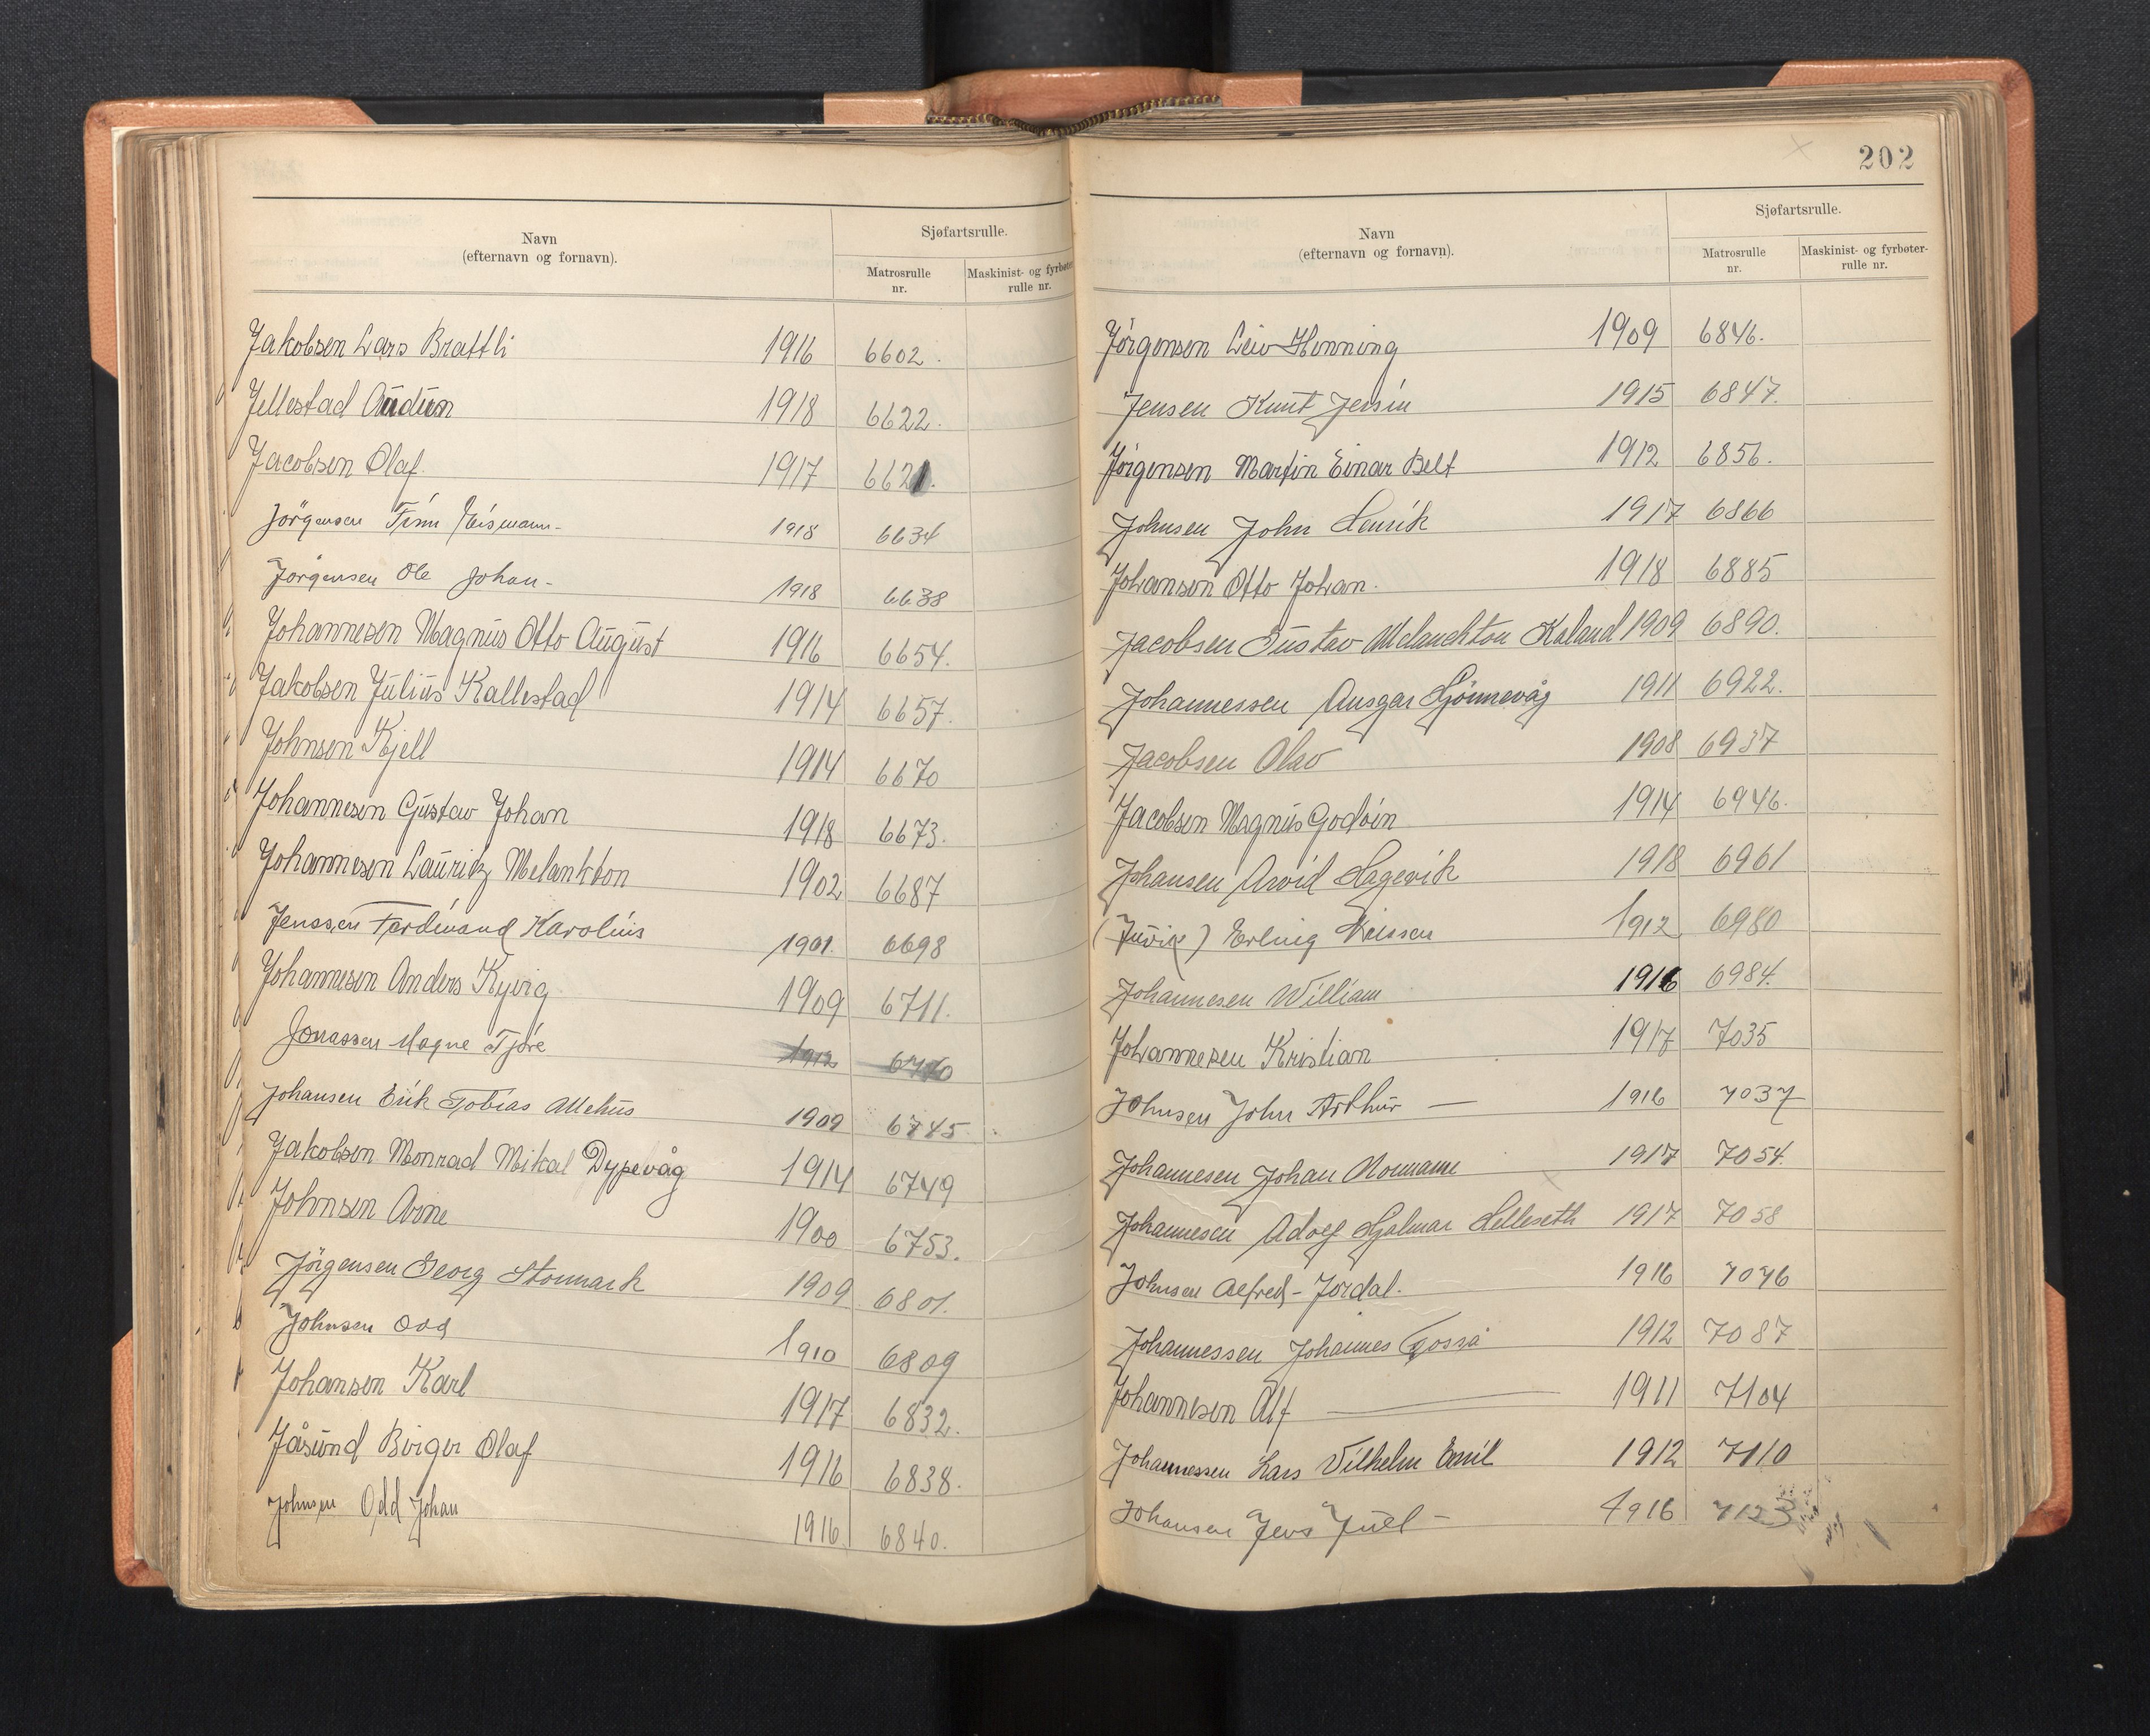 Navn
(efternavn og fornavn).
Sjøfartsrulle.
Matrosrulle
nr.
Maskinist- og fyrbøter
rulle nr.
Jakobsen Lars Brattli 1916 6602.
Jellestad Audun 1918 6622.
Jacobsen Olaf. 1917 6621.
Jörgensen Finn 1918 6634
Jørgensen Ole Johan- 1918 6638
Johannesen Magnus Otto August 1916 6654.
Jakobsen Julius Kallestad 1914 6657.
Johnsen Kjell 1914 6670
Johannesen Gustav Johan 1918 6673.
Johannesen Lauritz Melankton 1902 6687
Jenssen Ferdinand Karolius 1901. 6698
Johannesen Anders Kyvig 1909 6711.
Jonassen Magne Tjøre 1912
Johansen Erik Tobias Mehus 1909 6745
Jakobsen Monrad Mikal Dypevåg 1914 6749
Johnsen Arne 1900 6753.
Jörgensen Georg Stonmark 1909 6801.
Johnsen Odd 1910 6809
Johansen Karl 1917 6832.
Jåsund Birger Olaf 1916 6838.
Johnsen Odd Johan 1916 6840.
202
Navn
(efternavn og fornavn).
Sjøfartsrulle.
Matrosrulle
nr.
Maskinist- og fyrbøter-
rulle nr.
Jörgensen Leiv Henning 1909 6846.
Jensen Knut Jensin 1915 6847.
Jörgensen Martin Einar Belt 1912 6856.
Johnsen John Henrik 1917 6866
Johansen Otto Johan. 1918 6885
Jacobsen Gustav Melanchton Kaland 1909 6890.
Johannessen Ansgar Gjönnevåg 1911 6922.
Jacobsen Olav 1908 6937
Jacobsen Magnus Godvin 1914 6946.
Johansen Arvid Hagevik 1918 6961
(Juvik) Erling 1912 6980
Johannesen William 1916 6984.
Johannesen Kristian 1917 7035
Johnsen John Arthur — 1916 7037
Johannesen Johan Normann 1917 7054.
Johannesen Adolf Hjalmar Helleseth 1917 7058
Johnsen Alfred - Jordal. 1916 7076
Johannessen Johannes 1912 7087
Johannesen Alf — 1911 7104
Johannessen Lars Vilhelm Emil 1912 7110
Johansen Jens Juel - 1916 7123